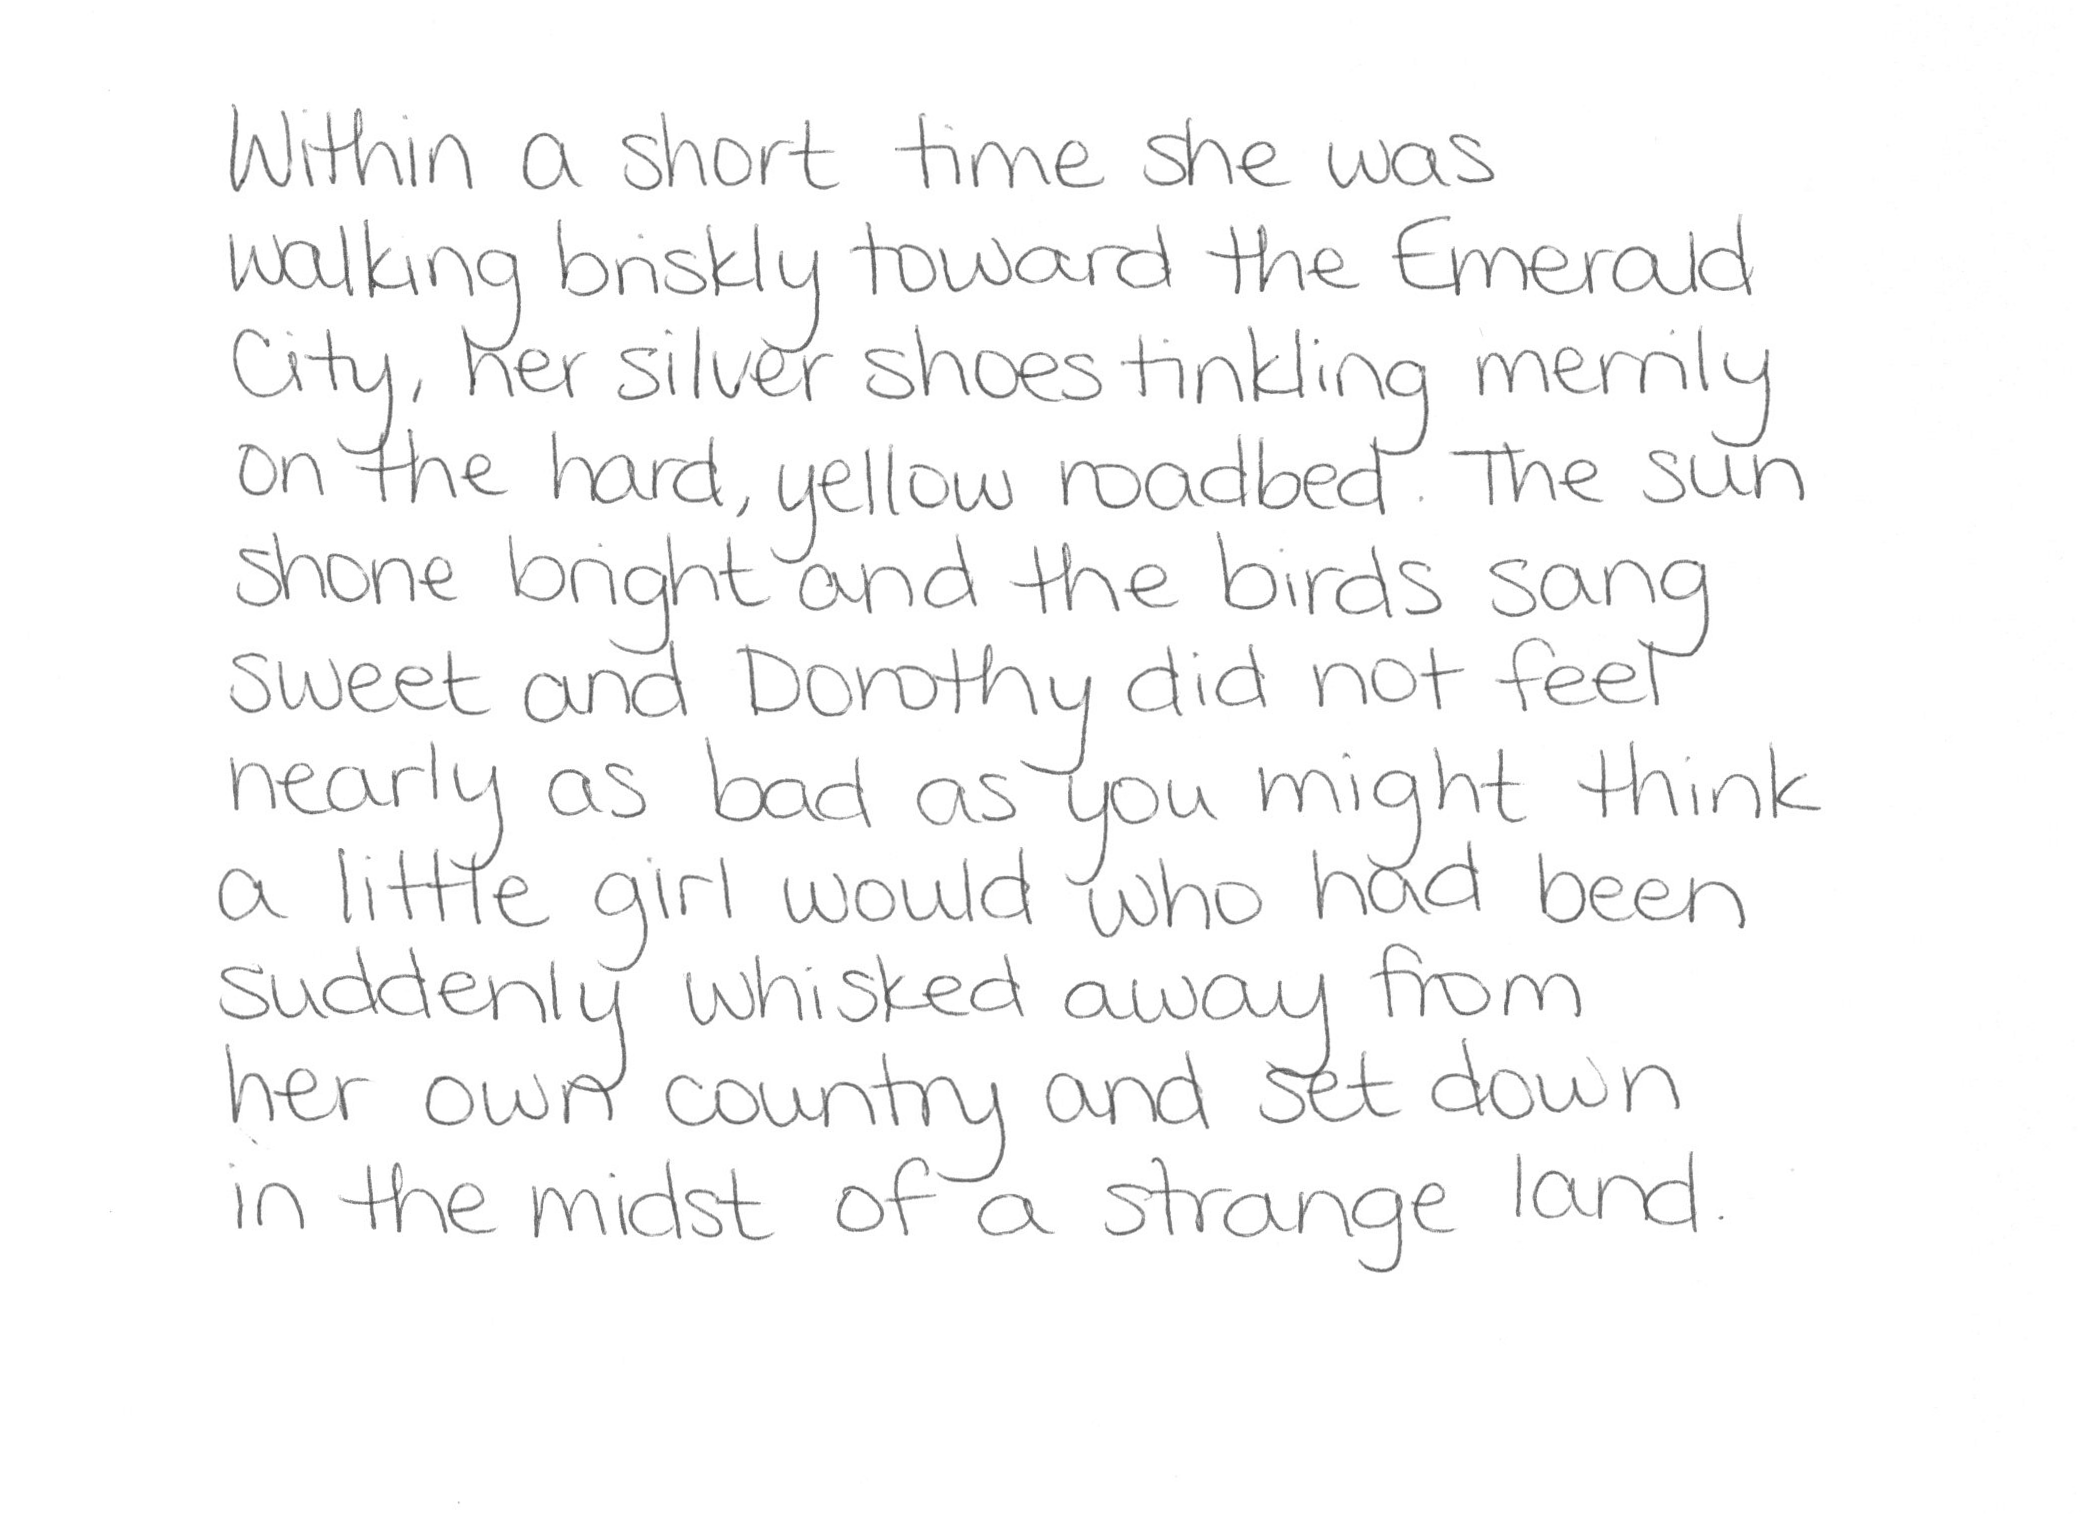 Within a short time she was
walking briskly toward the Emerald
City, her silver shoes tinkling merrily
on the hard, yellow roadbed. The sun
shone bright and the birds sang
sweet and Dorothy did not feel
nearly as bad as you might think
a little girl would who had been
suddenly whisked away from
her own country and set down
in the midst of a strange land.